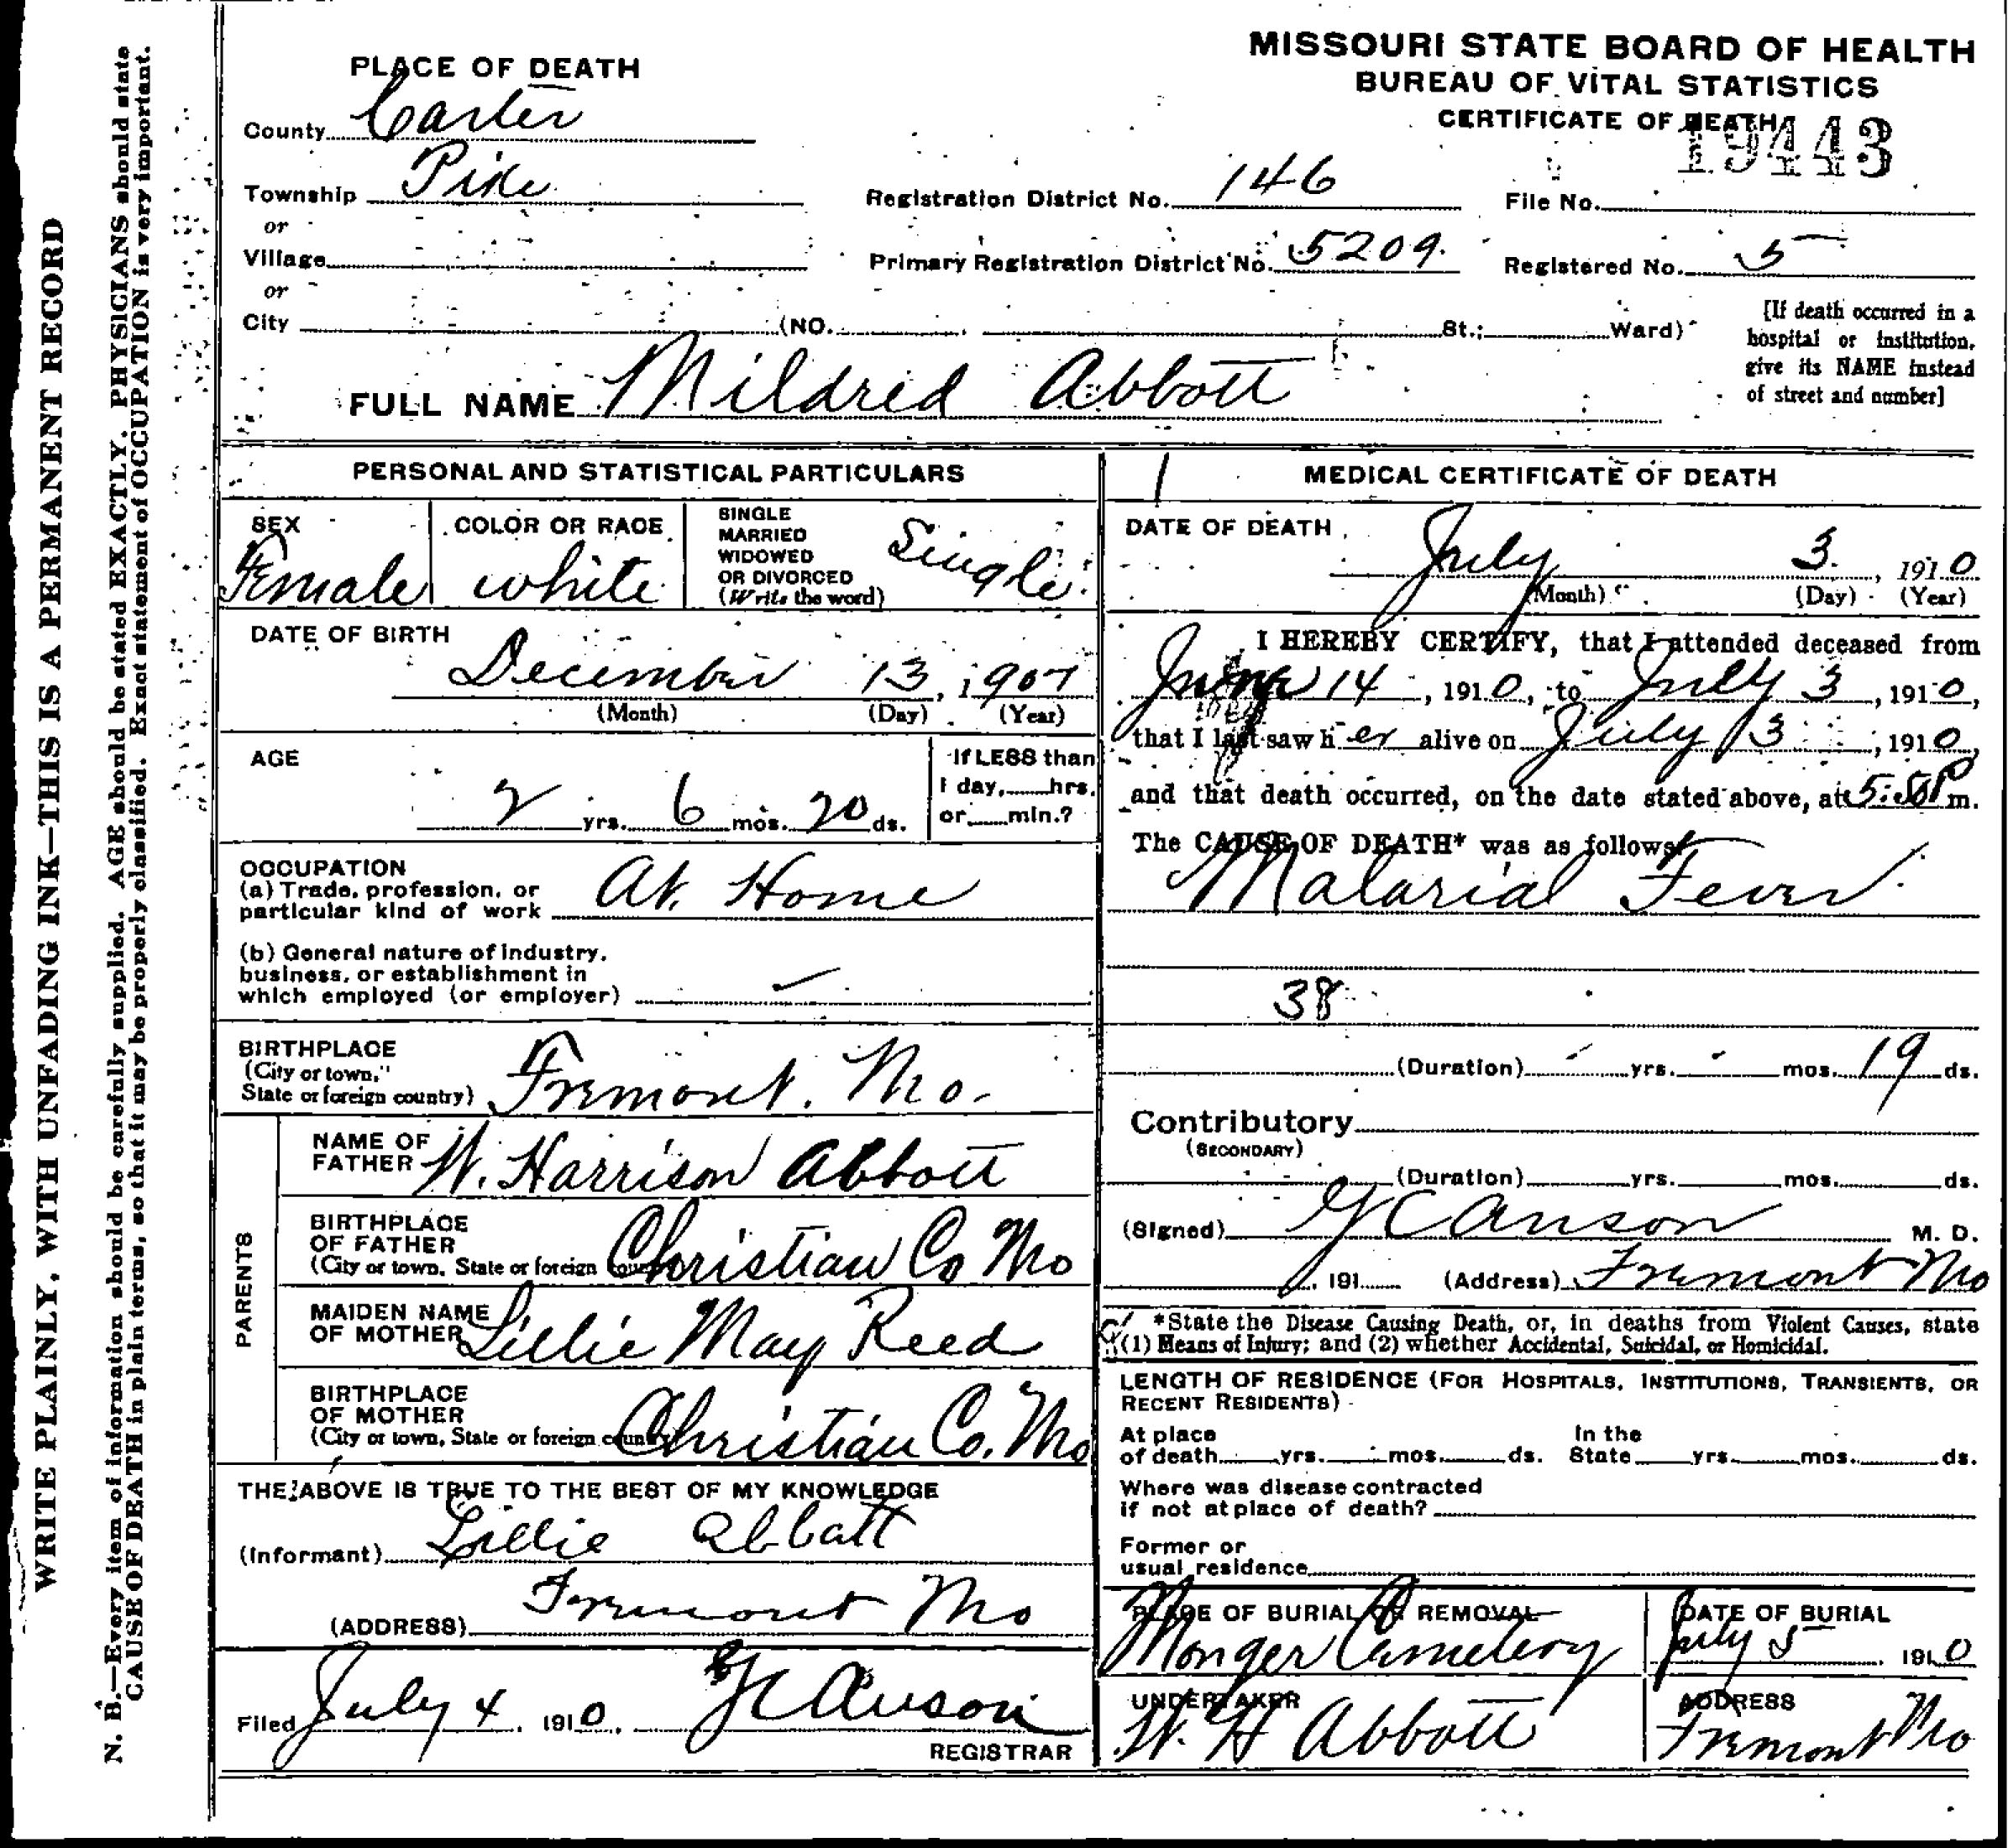 MISSOURI STATE BOARD OF HEALTH
BUREAU OF VITAL STATISTICS
CERTIFICATE OF DEATH
19443
PLACE OF DEATH
County Carter
Township Pike
Registration District No. 146
File No.
or
Village
Primary Registration District No. 5209.
Registered No. 5
or
City (NO. St.; Ward)
[If death occurred in a
hospital or institution,
give its NAME instead
of street and number]
FULL NAME Mildred Abbott
PERSONAL AND STATISTICAL PARTICULARS
SEX
Female
COLOR OR RACE
white
SINGLE
MARRIED
WIDOWED
OR DIVORCED
(Write the word)
Single.
DATE OF BIRTH
December 13, 1907
(Month) (Day) (Year)
AGE
2 yrs. 6 mos. 20 ds.
If LESS than
1 day, hrs.
or min.?
OCCUPATION
(a) Trade, profession, or
particular kind of work At Home
(b) General nature of industry,
business, or establishment in
which employed (or employer)
BIRTHPLACE
(City or town,
State or foreign country) Fremont. Mo.
PARENTS
NAME OF
FATHER W. Harrison Abbott
BIRTHPLACE
OF FATHER
(City or town, State or foreign country) Christian Co Mo
MAIDEN NAME
OF MOTHER Lillie May Reed
BIRTHPLACE
OF MOTHER
(City or town, State or foreign country) Christian Co. Mo
THE ABOVE IS TRUE TO THE BEST OF MY KNOWLEDGE
(Informant) Lillie Abbatt
(ADDRESS) Fremont Mo
Filed July 4, 1910, J C Anson
REGISTRAR
MEDICAL CERTIFICATE OF DEATH
DATE OF DEATH
July 3, 1910
(Month) (Day) (Year)
I HEREBY CERTIFY, that I attended deceased from
June 14, 1910, to July 3, 1910,
that I last saw her alive on July 3, 1910,
and that death occurred, on the date stated above, at P m.
The CAUSE OF DEATH* was as follows:
Malarial Fever.
38
(Duration) yrs. mos. 19 ds.
Contributory
(SECONDARY)
(Duration) yrs. mos. ds.
(Signed) J C Anson M. D.
, 191 (Address) Fremont Mo
*State the Disease Causing Death, or, in deaths from Violent Causes, state
(1) Means of Injury; and (2) whether Accidental, Suicidal, or Homicidal.
LENGTH OF RESIDENCE (FOR HOSPITALS, INSTITUTIONS, TRANSIENTS, OR
RECENT RESIDENTS)
At place
of death yrs. mos. ds.
In the
State yrs. mos. ds.
Where was disease contracted
if not at place of death?
Former or
usual residence
PLACE OF BURIAL OR REMOVAL
Monger Cemetery
DATE OF BURIAL
July 5 1910
UNDERTAKER
W. H Abbott
ADDRESS
Fremont Mo
WRITE PLAINLY, WITH UNFADING INK—THIS IS A PERMANENT RECORD
N. B.—Every item of information should be carefully supplied. AGE should be stated EXACTLY. PHYSICIANS should state
CAUSE OF DEATH in plain terms, so that it may be properly classified. Exact statement of OCCUPATION is very important.